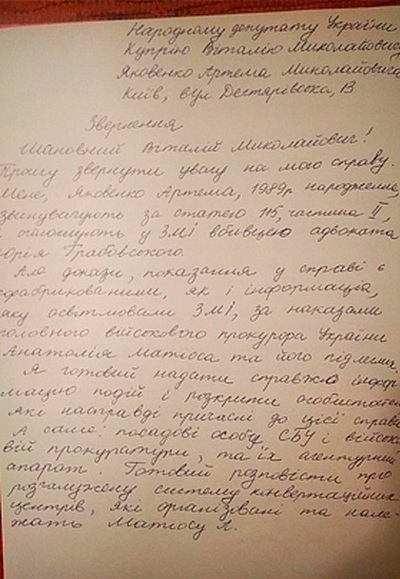 Народному депутату України
Купрію Віталію Миколайовичу
Яковенко Артема Миколайовича
Київ, вул Дегтярівська, В
Звернення
Шановний Віталій Миколайович!
Прошу звернути увагу на мою справу.
Мене, Яковенко Артема, 1989р народження,
звинувачують за статею 115, частина II,
і оголошують у ЗМІ вбивцею адвоката
Юрія Грабовського.
Але докази, показання у справі є
сфабрикованими, як і інформація,
яку освітмовали ЗМІ, за наказами
головного військового прокурора України
Анатолія Матіоса та його підлеглих.
Я готовий надати справжю інфор
мацію подій і розкрити особистостей
які насправді причасні до цієї справи
А саме: посадові особи СБУ і військо
вій прокуратури, та їх агентурний
апарат. Готовий розповісти про
розгалужену систему конвертаційних
центрів, які організовані та нале-
жать Матіосу А.